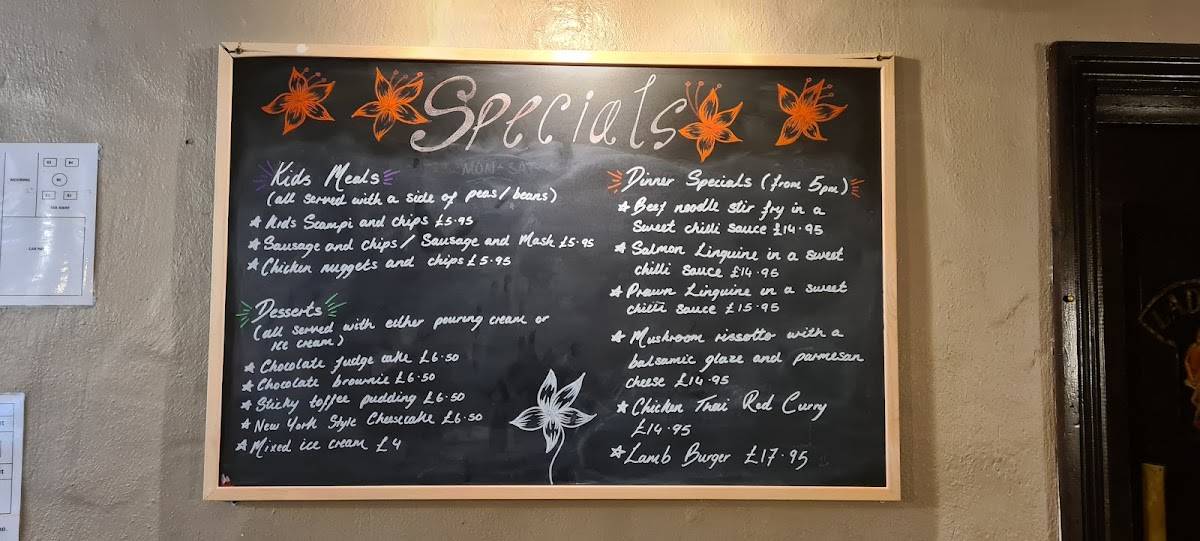 Specials
MON-SAT
Kids Meals
(all served with a side of peas/beans)
Kids Scampi and chips £5.95
Sausage and chips/ Sausage and Mash £5.95
Chicken nuggets and chips £5.95
Desserts
(all served with either pouring cream or
ice cream)
Chocolate fudge cake £6.50
Chocolate brownie £6.50
Sticky toffee pudding £6.50
New York Style Cheesecake £6.50
Mixed ice cream £4
Dinner Specials (from 5pm)
Beef noodle stir fry in a
Sweet chilli sauce £14.95
Salmon Linguine in a sweet
chilli sauce £14.95
Prawn Linguine in a sweet
chilli sauce £15.95
Mushroom rissotto with a
balsamic glaze and parmesan
cheese £14.95
Chicken Thai Red Curry
£14.95
Lamb Burger £17.95